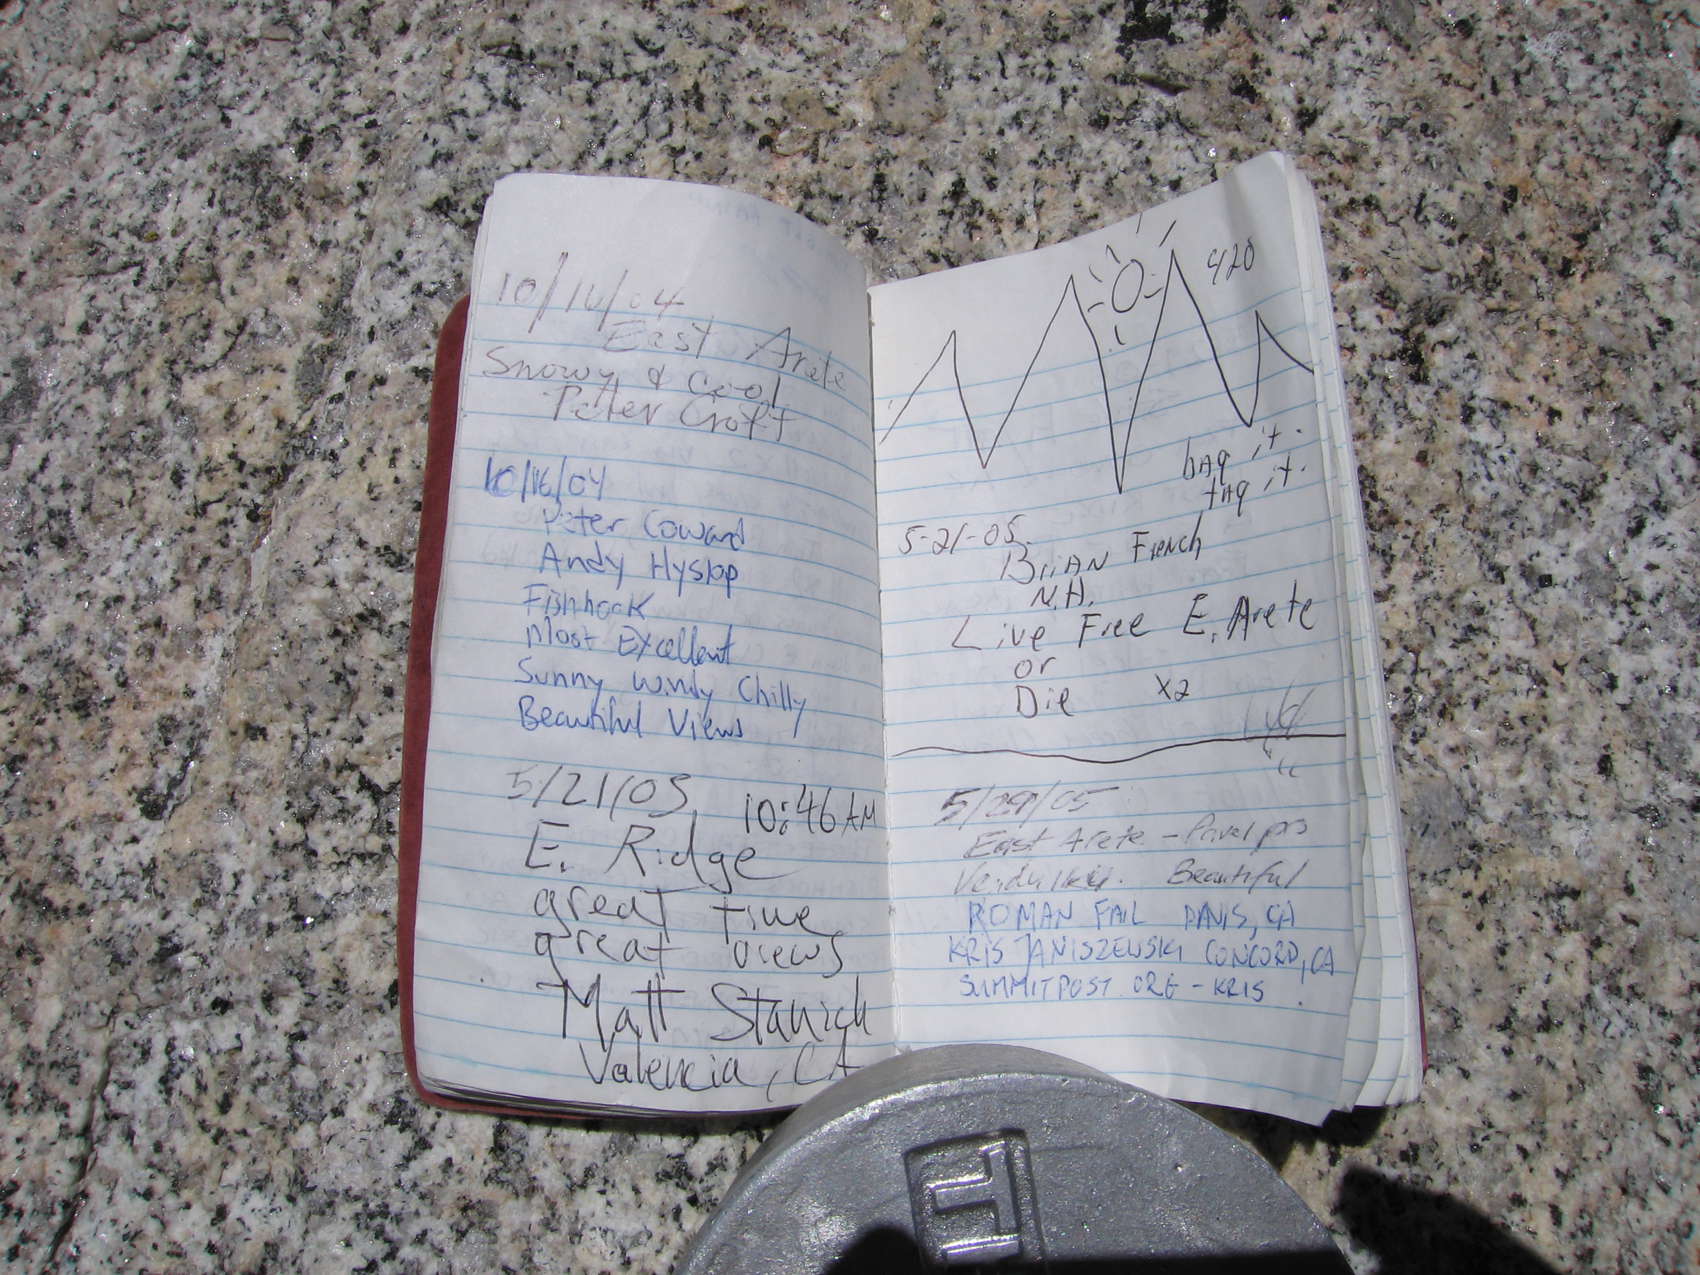 10/14/04
East Arete
Snowy & Cool
Peter Croft
10/16/04
Peter Coward
Andy Hyslop
Fishhook
Most Excellent
Sunny Windy Chilly
Beautiful Views
5/21/05 10:46 AM
E. Ridge
great time
great views
Matt Stanich
Valencia, CA
420
bAg it.
tAg it.
5-21-05.
BriAN French
N.H.
Live Free E. Arete
or
Die X2
5/29/05
East Arete -
Beautiful
ROMAN FAIL DAVIS, CA
KRIS JANISZEWSKI CONCORD, CA
SUMMITPOST.ORG - KRIS